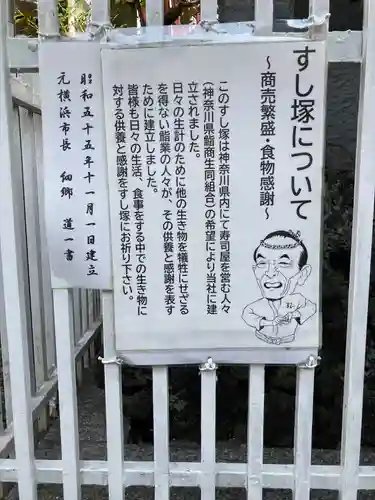 すし塚について
〜商売繁盛・食物感謝〜
このすし塚は神奈川県内にて寿司屋を営む人々
(神奈川県鮨商生同組合)の希望により当社に建
立されました。
日々の生計のために他の生き物を犠牲にせざる
を得ない鮨業の人々が、その供養と感謝を表す
ために建立しました。
皆様も日々の生活、食事をする中での生き物に
対する供養と感謝をすし塚にお祈り下さい。
昭和五十五年十一月一日建立
元横浜市長 細郷 道一書